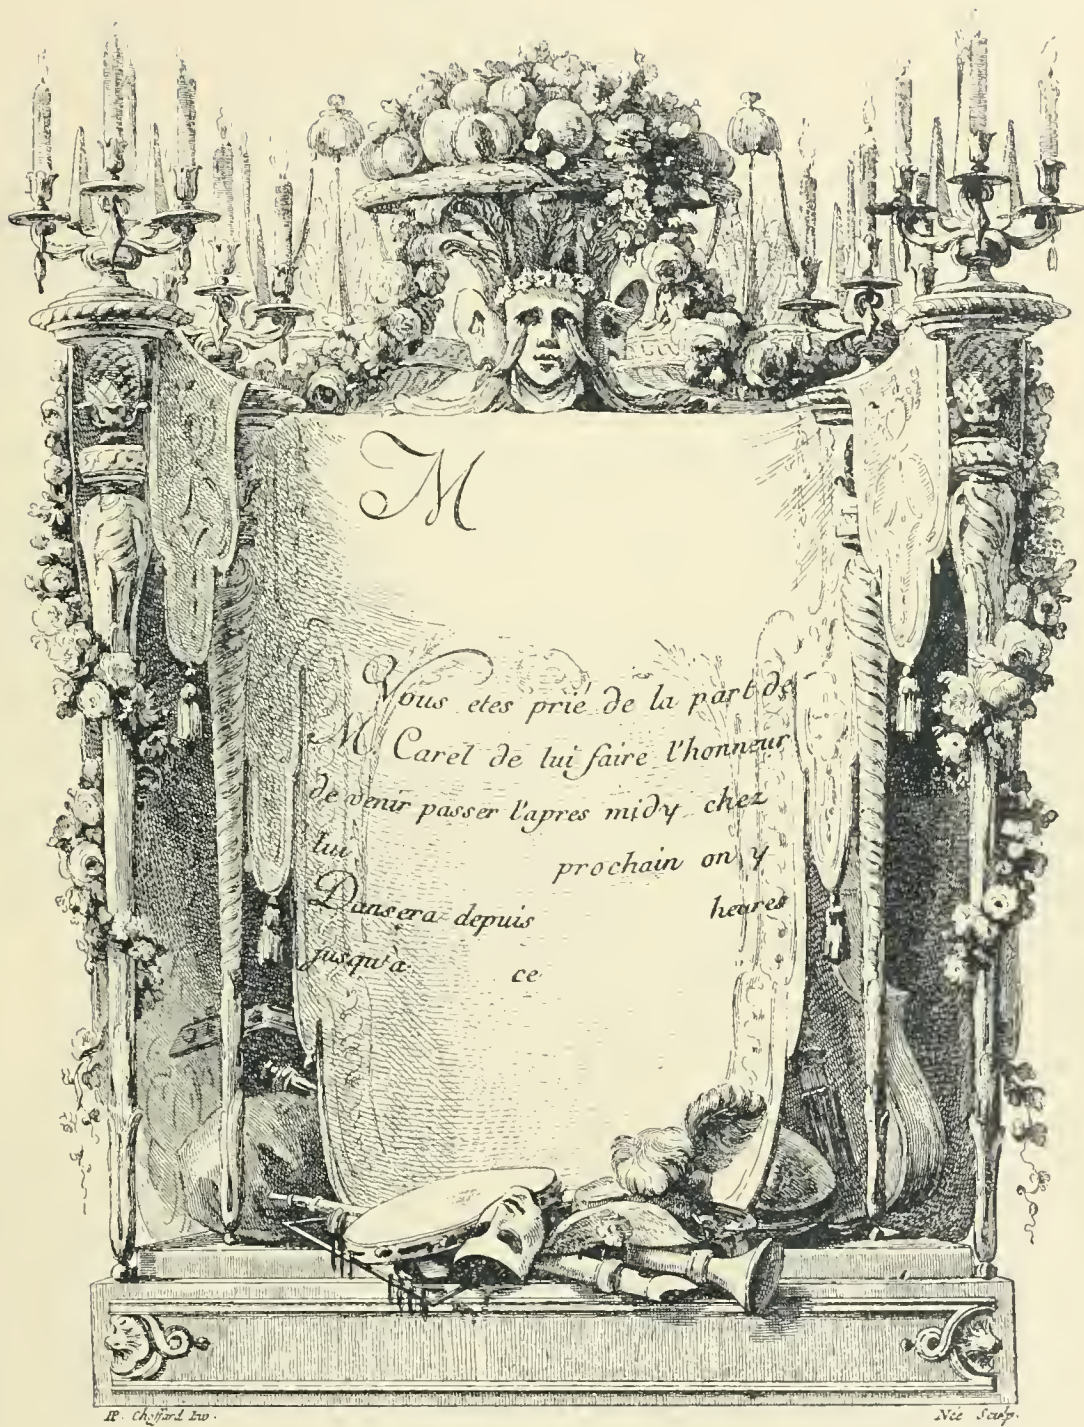 M
Vous etes prié de la part de
M. Carel de lui faire l'honneur
de venir passer l'apres midy chez
lui prochain on y
Dansera depuis heures
jusqu'a ce
P.P. Choffard Inv.
Née Sculp.